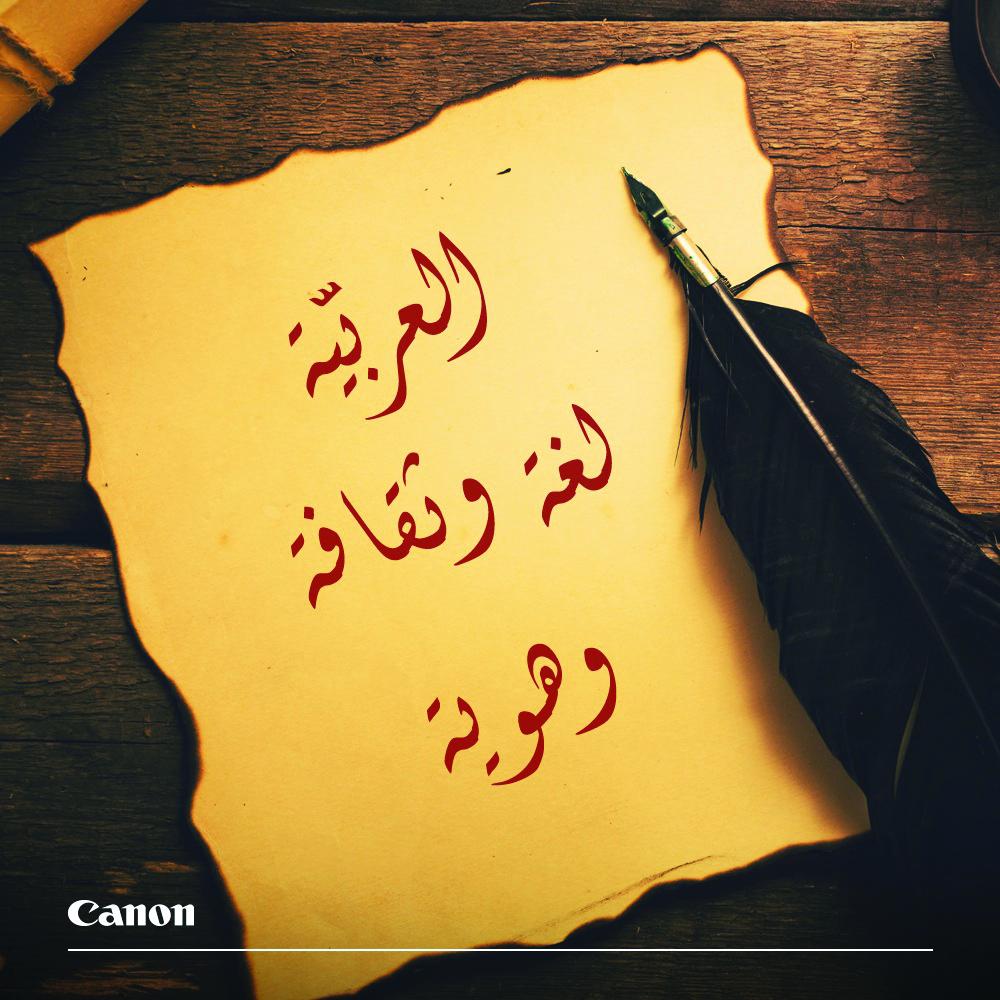 العربيَّة
لغة وثقافة
وهوية
Canon